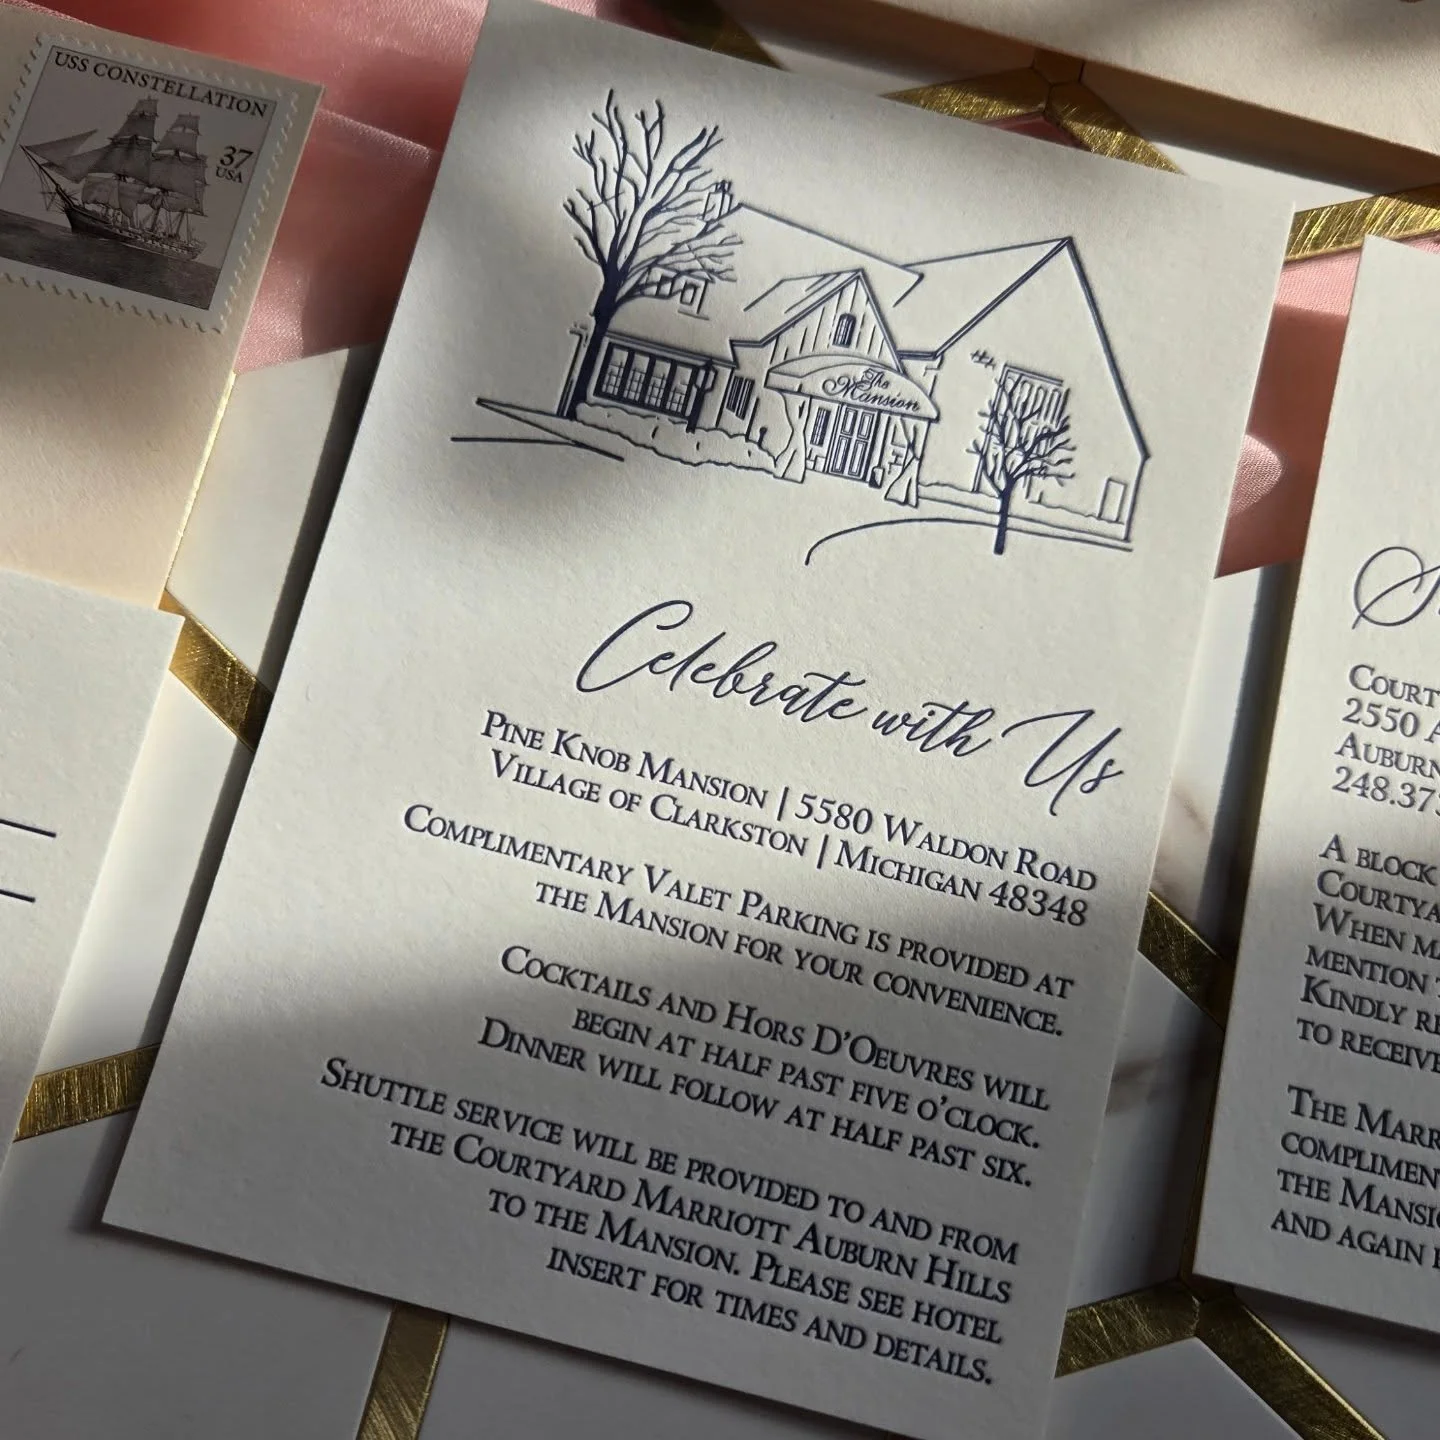 USS CONSTELLATION
37
USA
The
Mansion
Celebrate with Us
PINE KNOB MANSION | 5580 WALDON ROAD
VILLAGE OF CLARKSTON | MICHIGAN 48348
COMPLIMENTARY VALET PARKING IS PROVIDED AT
THE MANSION FOR YOUR CONVENIENCE.
COCKTAILS AND HORS D'OEUVRES WILL
BEGIN AT HALF PAST FIVE O'CLOCK.
DINNER WILL FOLLOW AT HALF PAST SIX.
SHUTTLE SERVICE WILL BE PROVIDED TO AND FROM
THE COURTYARD MARRIOTT AUBURN HILLS
TO THE MANSION. PLEASE SEE HOTEL
INSERT FOR TIMES AND DETAILS.
2550
248.37
A BLOCK
WHEN
MENTION
KINDLY
TO RECEIVE
THE
THE
AND AGAIN